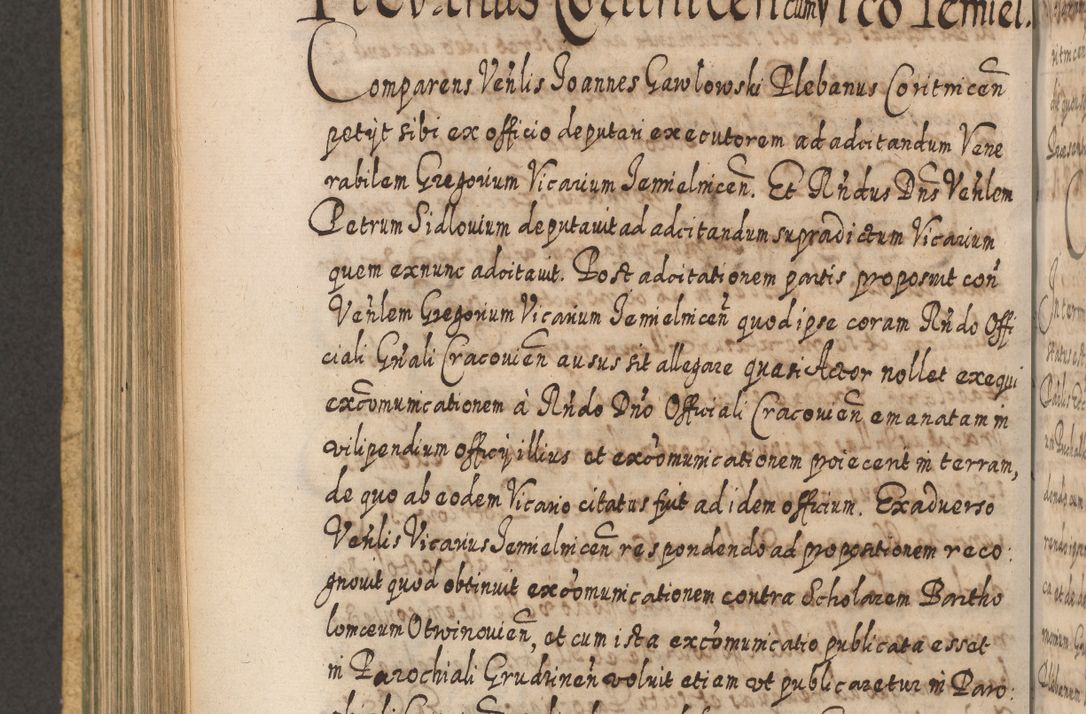 Plebanus Coritnicen cum Vico Iemiel.
Comparens Venlis Ioannes Gawlowski Plebanus Coritnicen
petijt sibi ex officio deputari executorem ad adcitandum Vene
rabilem Gregorium Vicarium Iemielnicen. Et Rndus Dns Venlem
Petrum Sidlovium deputavit ad adcitandum supradictum Vicarium
quem exnunc adcitavit. Post adcitationem partis proposuit con
Venlem Gregorium Vicarium Iemielnicen quod ipse coram Rndo Offi
ciali Gnali Cracovien ausus sit allegare quasi Actor nollet exequi
excomunicationem à Rndo Dno Officiali Cracovien emanatam in
vilipendium officij illius et excomunicationem proiecerit in terram,
de quo ab eodem Vicario citatus fuit ad idem officium. Exadverso
Venlis Vicarius Iemielnicen respondendo ad propositionem reco:
gnovit quod obtinuit excomunicationem contra Scholarem Bartho
lomeum Otwinovien, et cum ista excomunicatio publicata esset
in Parochiali Grudzinen voluit etiam ut publicaretur in Paro: